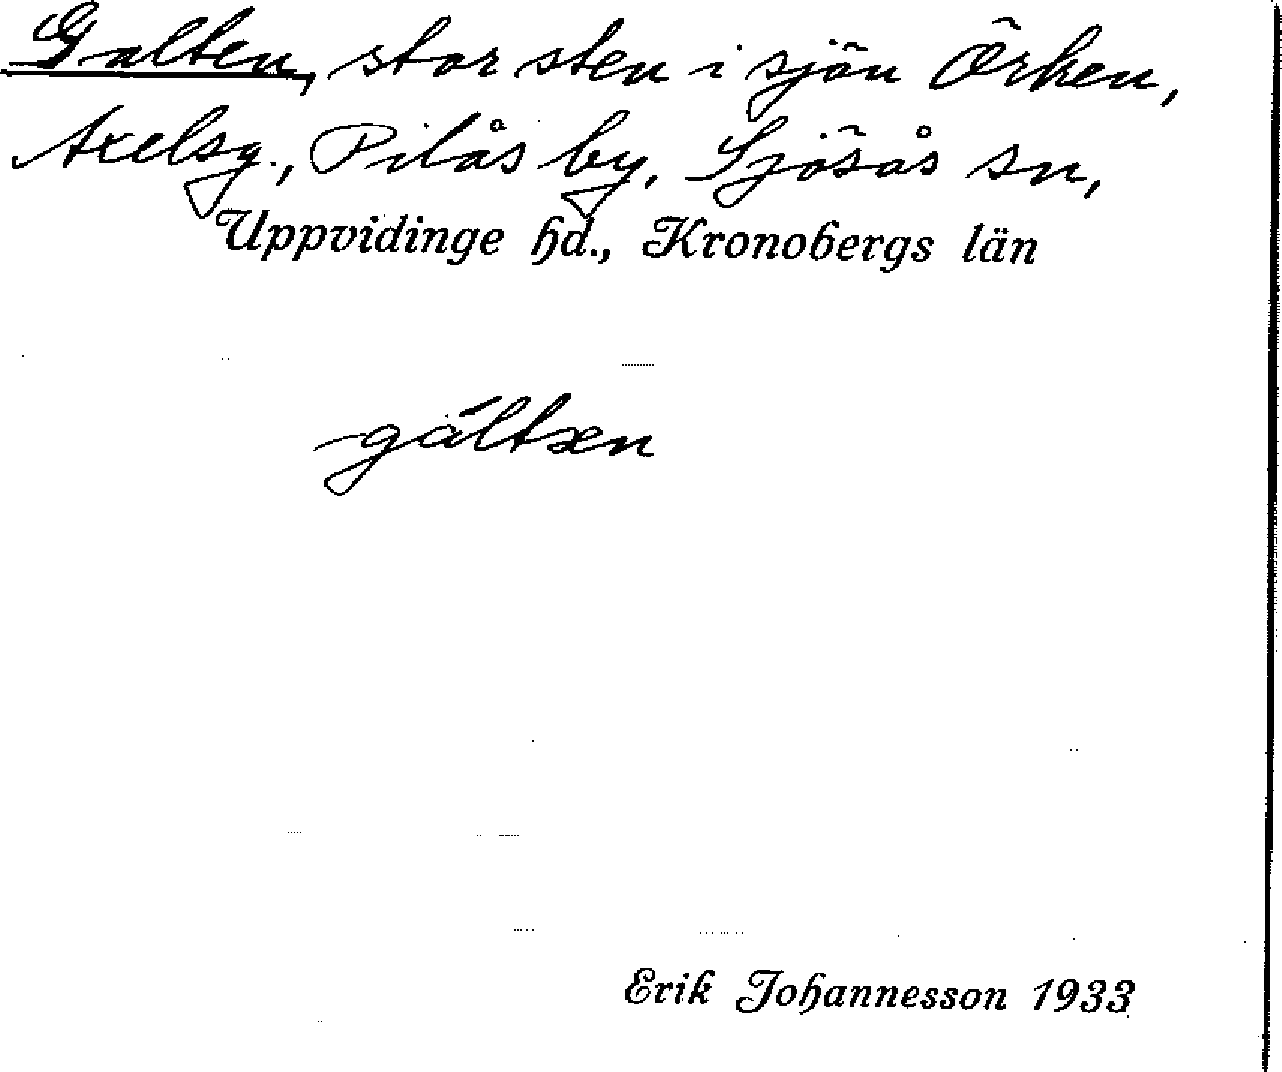 Galten, stor sten i sjön Örken,
Axelsg., Pilås by, Sjösås sn,
Uppvidinge hd., Kronobergs län
gáltæn
Erik Johannesson 1933